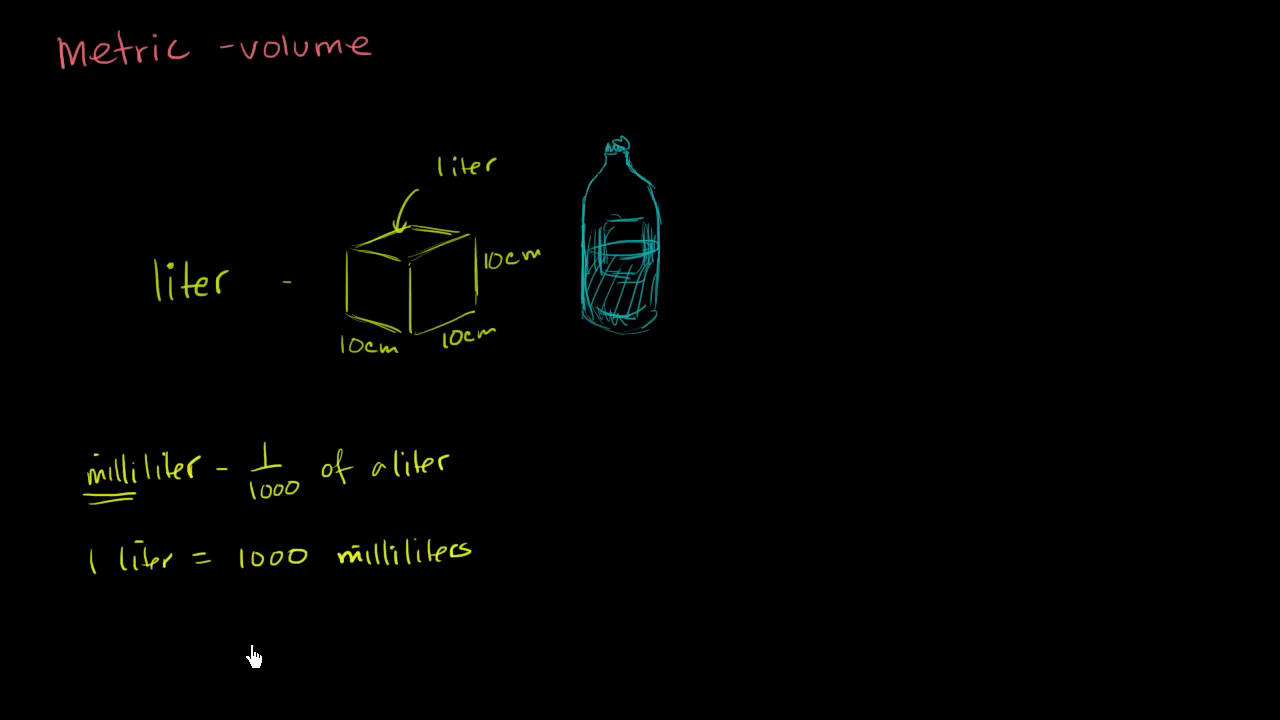 Metric - volume
liter
liter -
10cm
10cm
10cm
milliliter - 1/1000 of a liter
1 liter = 1000 milliliters